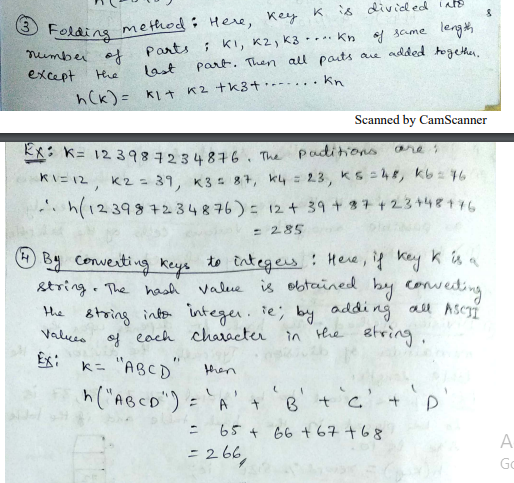 ③ Folding method : Here, key K is divided into
number of parts ; K1, K2, K3 .... Kn of same length
except the last part. Then all parts are added together.
h(K) = K1 + K2 + K3 + ....... Kn
Scanned by CamScanner
Ex: K = 12 39 8 7 2 3 4 8 7 6 . The partitions are :
K1 = 12 , K2 = 39, K3 = 87, K4 = 23, K5 = 48, K6 = 76
∴ h(12398723 4876) = 12 + 39 + 87 + 23 + 48 + 76
= 285
④ By converting keys to integers : Here, if key K is a
string. The hash value is obtained by converting
the string into integer. ie; by adding all ASCII
values of each character in the string.
Ex: K = "ABCD" then
h("ABCD") = 'A' + 'B' + 'C' + 'D'
= 65 + 66 + 67 + 68
= 266
A
Go